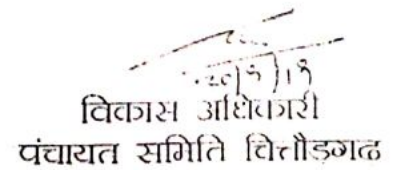 विकास अधिकारी
पंचायत समिति चित्तौड़गढ